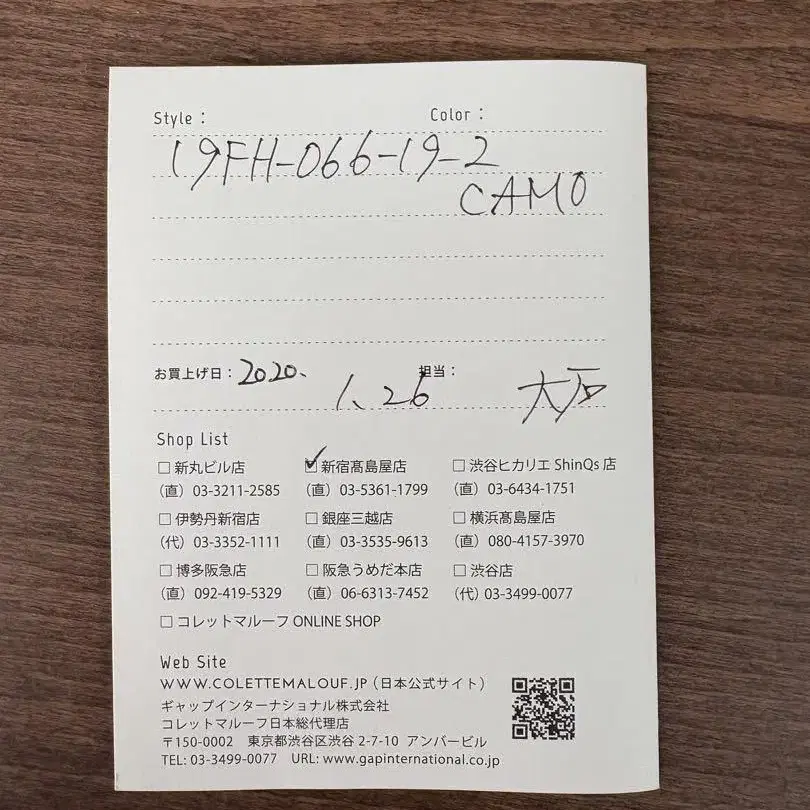 Style： Color：
19FH-066-19-2
CAMO
お買上げ日：2020、 担当：
1、26 大石
Shop List
□ 新丸ビル店 ☑ 新宿髙島屋店 □ 渋谷ヒカリエ ShinQs 店
（直）03-3211-2585 （直）03-5361-1799 （直）03-6434-1751
□ 伊勢丹新宿店 □ 銀座三越店 □ 横浜髙島屋店
（代）03-3352-1111 （直）03-3535-9613 （直）080-4157-3970
□ 博多阪急店 □ 阪急うめだ本店 □ 渋谷店
（直）092-419-5329 （直）06-6313-7452 （代）03-3499-0077
□ コレットマルーフ ONLINE SHOP
Web Site
WWW.COLETTEMALOUF.JP（日本公式サイト）
ギャップインターナショナル株式会社
コレットマルーフ日本総代理店
〒150-0002 東京都渋谷区渋谷 2-7-10 アンバービル
TEL: 03-3499-0077 URL: www.gapinternational.co.jp